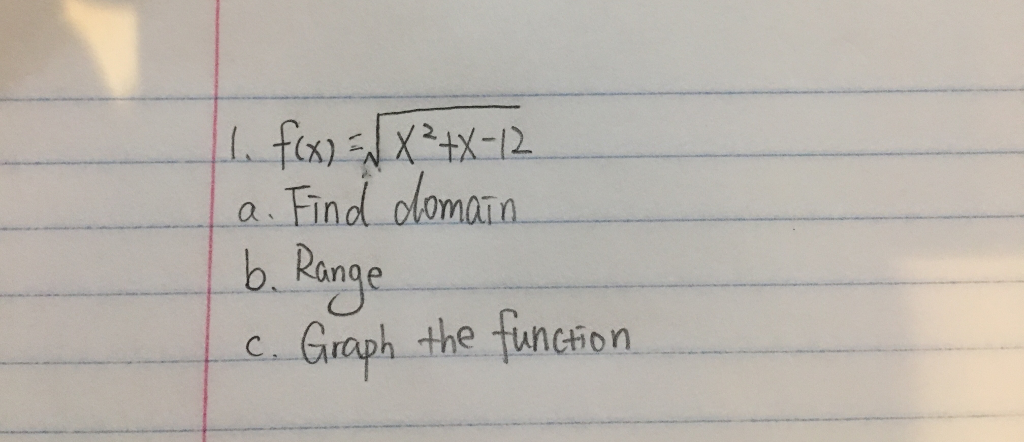 1. f(x) = √x²+x-12
a. Find domain
b. Range
c. Graph the function